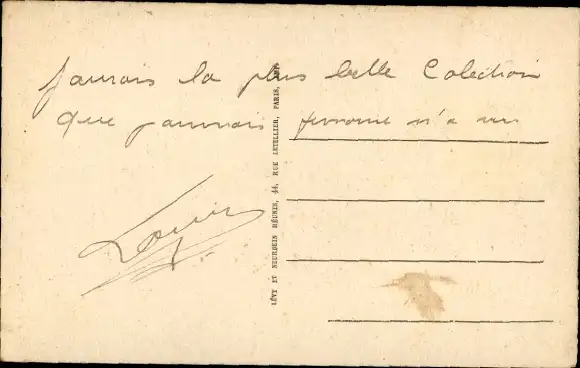 jaurais la plus belle Colection
que jammais personne n'a vu
Louis
LÉVY ET NEURDEIN RÉUNIS, 44, RUE LETELLIER, PARIS, IMP.